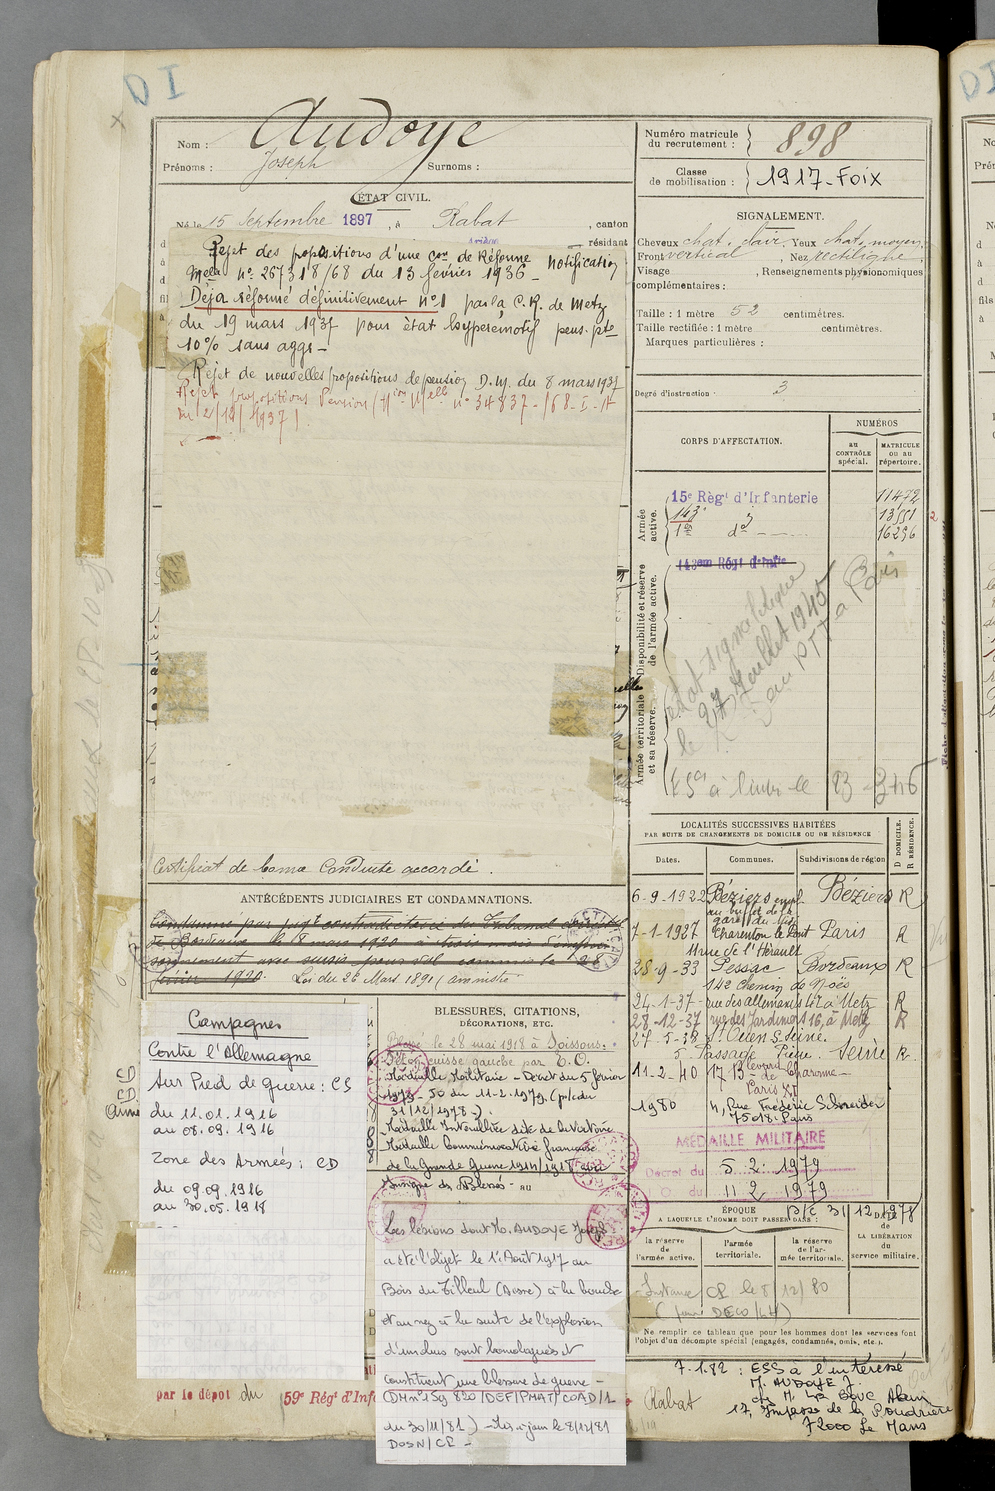 DI
Nom : Audoye
Prénoms : Joseph Surnoms :
ÉTAT CIVIL.
Né le 15 Septembre 1897, à Rabat, canton
résidant
Rejet des propositions d'une Con de Réforme Notification
Mle no 26731 8/68 du 13 février 1936_
Déja réformé définitivement no 1 par la C.R. de Metz
du 19 mars 1937 pour état hyperémotif pens. pte
10% sans aggr_
Rejet de nouvelles propositions de pension D.M. du 8 mars 1937
Rejet propositions Pension no 34837-/68-I-A
du 2/12/1937).
Certificat de bonne Conduite accordé.
ANTÉCÉDENTS JUDICIAIRES ET CONDAMNATIONS.
Condamné par jugt contradictoire du Tribunal
de Bordeaux le 8 mars 1920 à trois mois d'empri-
sonnement avec sursis pour vol commis le 28
février 1920. Loi du 26 Mars 1891 (amnistie
Campagnes
Contre l'Allemagne
Sur Pied de guerre : CS
du 11.01.1916
au 08.09.1916
Zone des Armées : CD
du 09.09.1916
au 30.05.1918
par le dépôt du 59e Régt d'Inf
BLESSURES, CITATIONS,
DÉCORATIONS, ETC.
Blessé le 28 mai 1918 à Soissons :
cuisse gauche par E.O.
Médaille Militaire - Décret du 5 février
1979 - JO du 11-2-1979. (p/c du
31/12/1978-).
Médaille Interalliée dite de la Victoire
Médaille Commémorative française
de la Grande Guerre 1914/1918 avec
Insigne des Blessés - au
Les lésions dont M. AUDOYE Joseph
a été l'objet le 1er Août 1917 au
Bois du Tilleul (Aisne) à la bouche
et au nez à la suite de l'explosion
d'un obus sont homologués et
constituent une blessure de guerre -
(DM no 159 820/DEF/PMAT/COAD/1
du 30/11/81) - Mis à jour le 8/12/81
DOSN/CR -
Numéro matricule
du recrutement : 898
Classe
de mobilisation : 1917-FOIX
SIGNALEMENT.
Cheveux chat. clair, Yeux chat. moyen,
Front vertical, Nez rectiligne,
Visage , Renseignements physionomiques
complémentaires :
Taille : 1 mètre 52 centimètres.
Taille rectifiée : 1 mètre centimètres.
Marques particulières :
Degré d'instruction : 3
CORPS D'AFFECTATION.
NUMÉROS
AU CONTRÔLE spécial.
MATRICULE ou au répertoire.
Armée active.
15e Régt d'Infanterie 11472
143e 13551
1er do 16296
Disponibilité et réserve de l'armée active.
142eme Régt d'Infie
Armée territoriale et sa réserve.
état signalétique
le 27 Juillet 1945
au PTT à Paris
ESS à l'inter le 23-3-46
LOCALITÉS SUCCESSIVES HABITÉES
PAR SUITE DE CHANGEMENTS DE DOMICILE OU DE RÉSIDENCE
Dates. Communes. Subdivisions de région D DOMICILE. R RÉSIDENCE.
6-9-1922 Béziers empl. Béziers R
au buffet de la
gare du Midi
7-1-1927 Charenton le Pont Paris R
11 rue de l'Hérault
28-9-33 Pessac Bordeaux R
142 Chemin de Noës
24-1-37- rue des allemands 42 à Metz R
28-12-37 rue des Jardiniers 16, à Metz R
27-5-38 St Ouen S. Seine.
5 Passage Pierre. Seine R.
11-2-40 17 Blevard
de Charonne-
Paris XI
1980 4, Rue Frédéric Schneider
75018. Paris
MÉDAILLE MILITAIRE
Décret du 5 2 1979
J.O du 11 2 1979
P/C 31/12/1978
ÉPOQUE
A LAQUELLE L'HOMME DOIT PASSER DANS :
la réserve de l'armée active.
l'armée territoriale.
la réserve de l'armée territoriale.
DATE de LA LIBÉRATION du service militaire.
Instance CR le 8/12/80
(pour DECO/LH)
Ne remplir ce tableau que pour les hommes dont les services font
l'objet d'un décompte spécial (engagés, condamnés, omis, etc.).
7.1.82 : ESS à l'intéressé
M. AUDOYE J.
ch. M. LE BOUC Alain
17, Impasse de la Poudrière
72000 Le Mans
Rabat